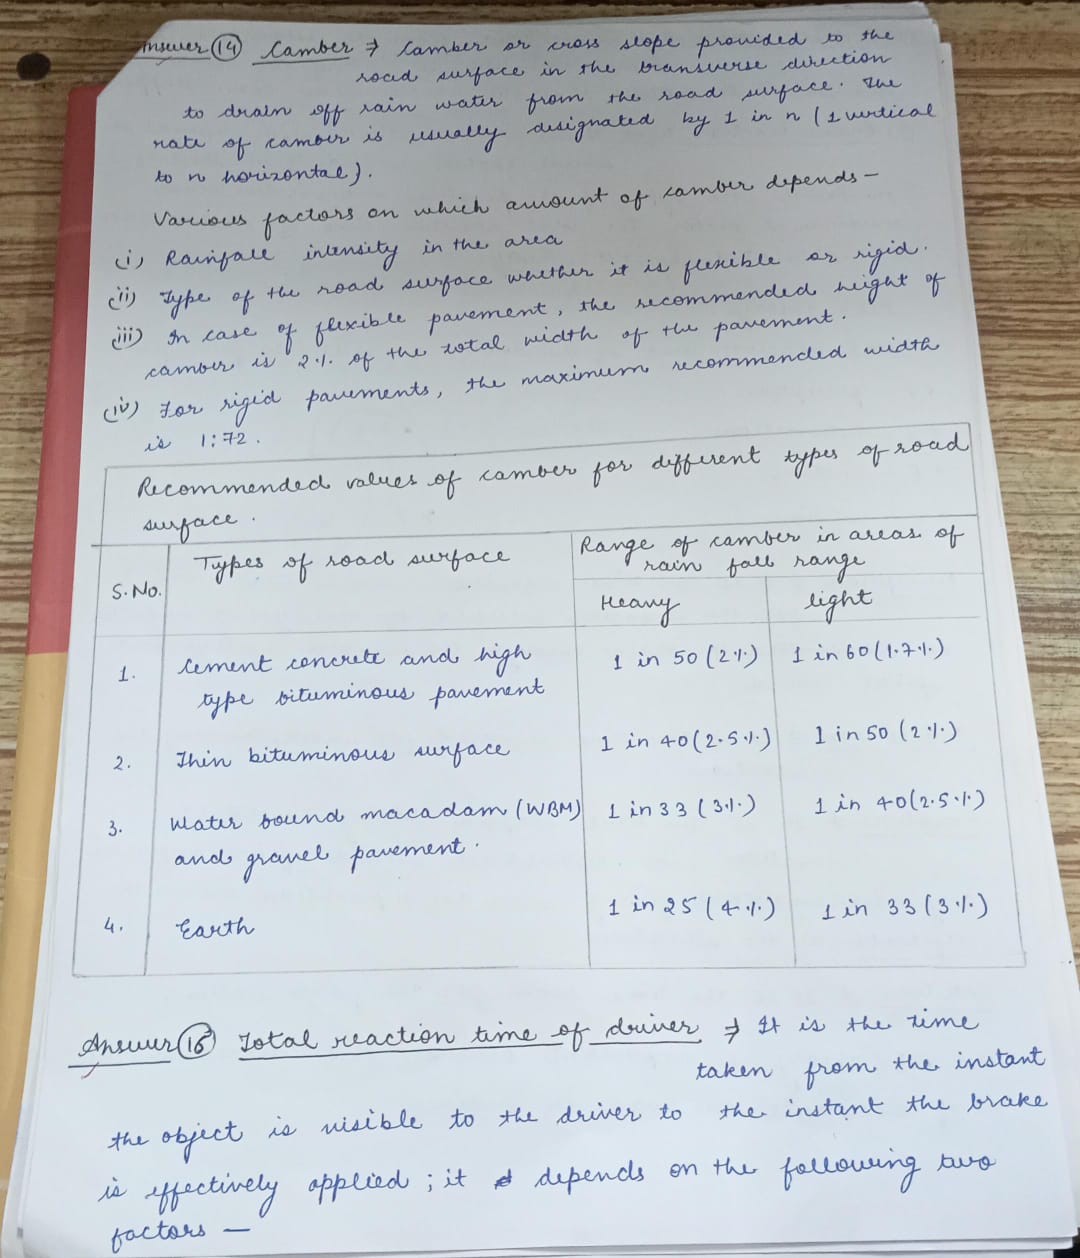 Answer (14) Camber ⇒ Camber or cross slope provided to the
road surface in the transverse direction
to drain off rain water from the road surface. The
rate of camber is usually designated by 1 in n (1 vertical
to n horizontal).
Various factors on which amount of camber depends -
(i) Rainfall intensity in the area
(ii) Type of the road surface whether it is flexible or rigid.
(iii) In case of flexible pavement, the recommended height of
camber is 2% of the total width of the pavement.
(iv) For rigid pavements, the maximum recommended width
is 1:72.
Recommended values of camber for different types of road
surface.
S.No. Types of road surface Range of camber in areas of
rain fall range
Heavy light
1. Cement concrete and high 1 in 50 (2%) 1 in 60 (1.7%)
type bituminous pavement
2. Thin bituminous surface 1 in 40 (2.5%) 1 in 50 (2%)
3. Water bound macadam (WBM) 1 in 33 (3%) 1 in 40 (2.5%)
and gravel pavement.
4. Earth 1 in 25 (4%) 1 in 33 (3%)
Answer Total reaction time of driver ⇒ It is the time
taken from the instant
the object is visible to the driver to the instant the brake
is effectively applied ; it depends on the following two
factors —